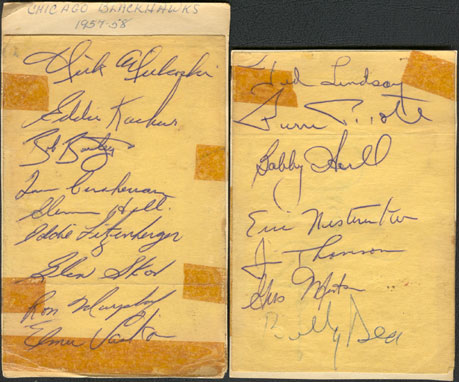 CHICAGO BLACKHAWKS
1957-58
Nick Mickoski
Eddie Kachur
Bob Bailey
Ian Cushenan
Glenn Hall.
Eddie Litzenberger
Glen Skov
Ron Murphy
Elmer Vasko
Ted Lindsay
Pierre Pilote
Bobby Hull
Eric Nesterenko
J. Thomson
Gus Mortson
Billy Dea